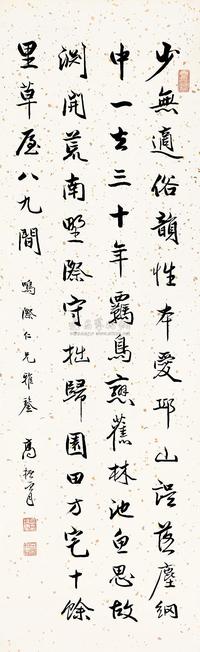 少無適俗韻性本愛邱山誤落塵網
中一去三十年羈鳥戀舊林池魚思故
淵開荒南野際守拙歸園田方宅十餘
里草屋八九間
鳴際仁兄雅鑒 高振霄